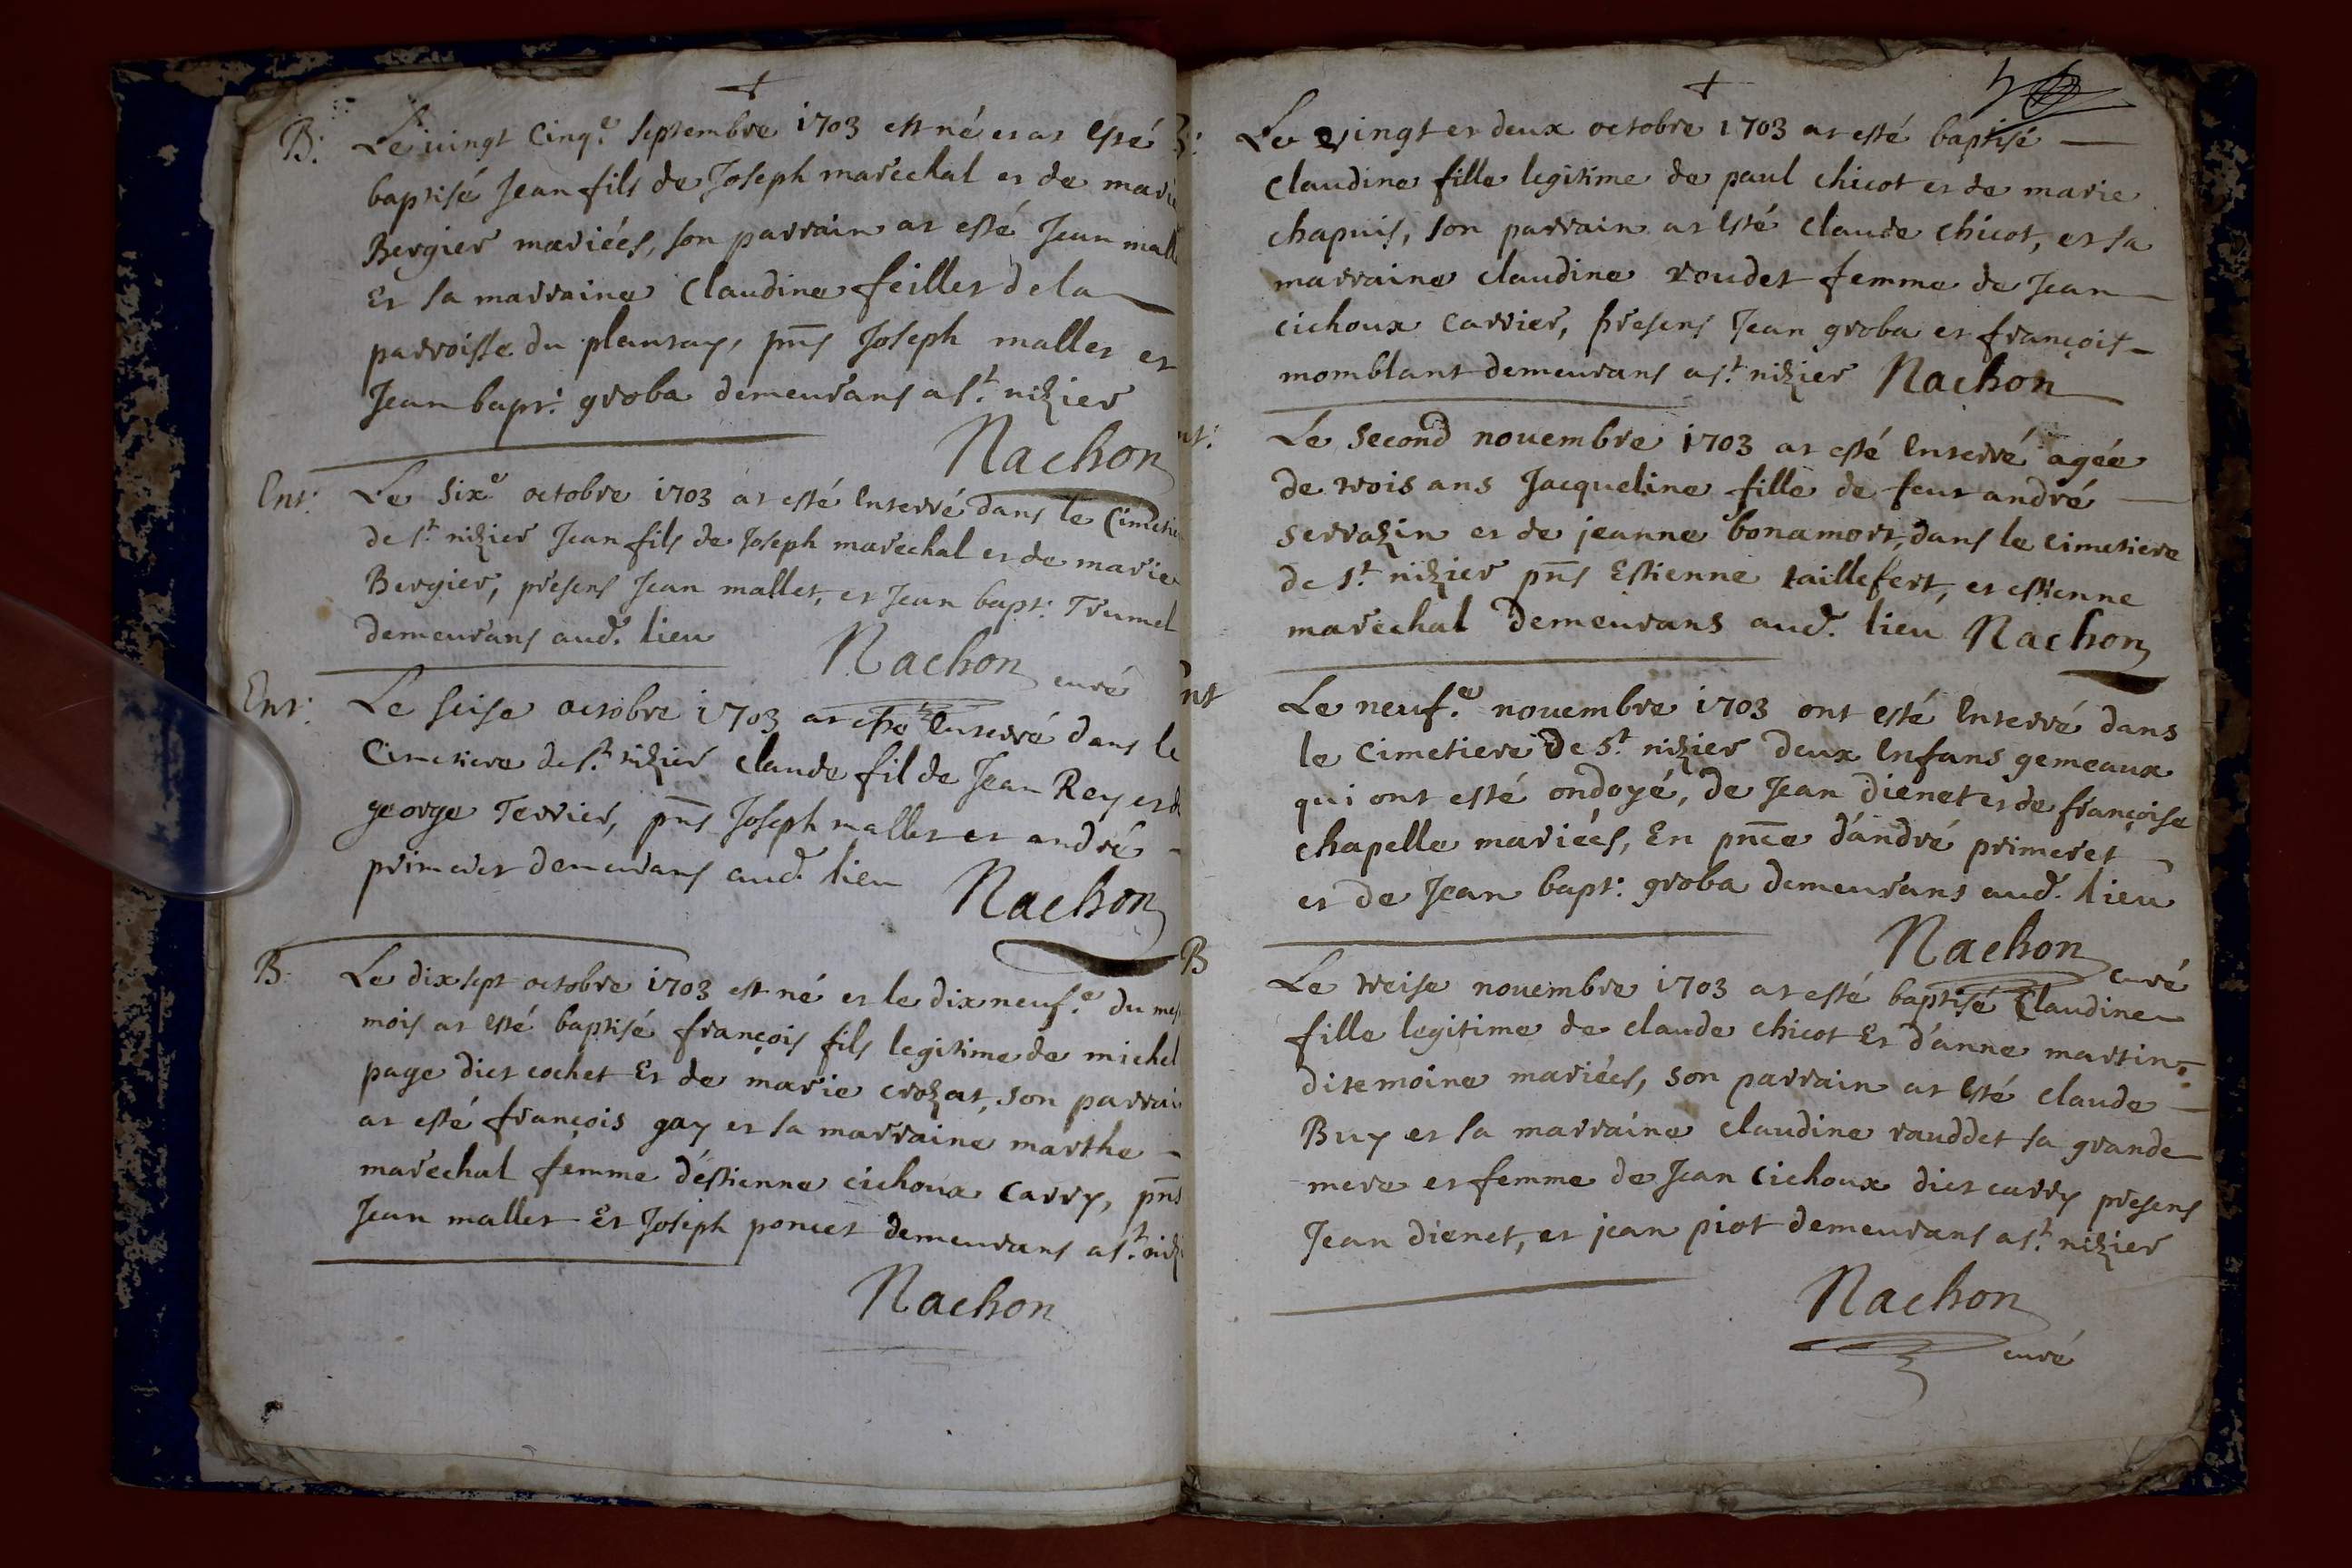 B. Le vingt cinq.e septembre 1703 est né et at esté
baptisé Jean fils de Joseph marechal et de marie
Bergier mariées, son parrain at esté Jean mall
Et sa marraine Claudine feillet de la
parroisse du plantay, pñs Joseph mallet et
Jean bapt: groba demeurans a st. nizier
Nachon
Ent: Le six.e octobre 1703 at esté Enterré dans le Cimetie
de st. nizier Jean fils de Joseph marechal et de marie
Bergier, presens Jean mallet, et Jean bapt: Trumel
demeurans aud. lieu
Nachon curé
Ent: Le seise octobre 1703 at esté Enterré dans le
Cimetiere de st. nizier claude fil de Jean Rey et d
george Terrier, pñs Joseph mallet et andré
primeret demeurans aud. lieu
Nachon
B. Le dix sept octobre 1703 est né et le dix neuf.e du mes
mois at esté baptisé françois fils legitime de michel
page dict cochet Et de marie crozat, son parrai
at esté françois gay et sa marraine marthe
marechal femme d'éstienne cichoux carry, pñs
Jean mallet Et Joseph poncet demeurans a st. niz
Nachon
Le vingt et deux octobre 1703 at esté baptisé
Claudine fille legitime de paul chicot et de marie
chapuis, son parrain at esté claude chicot, et sa
marraine claudine roudet femme de Jean
cichoux carrier, presens Jean groba et françois
momblant demeurans a st. nizier Nachon
nt: Le second novembre 1703 at esté Enterré agée
de trois ans Jacqueline fille de feut andré
serrazin et de jeanne bonamort, dans le cimetiere
de st. nizier pñs Estienne taillefert, et estienne
marechal demeurans aud. lieu Nachon
nt Le neuf.e novembre 1703 ont esté Enterré dans
le cimetiere de st. nizier deux Enfans gemeaux
qui ont esté ondoyé, de Jean dienet et de françoise
chapelle mariées, En pñce d'andré primeret
et de Jean bapt: groba demeurans aud. lieu
Nachon curé
B Le treise novembre 1703 at esté baptisé Claudine
fille legitime de claude chicot Et d'anne martin
dite moine mariées, son parrain at esté claude
Buy et sa marraine claudine rauddet sa grande
mere et femme de Jean cichoux dict carry presens
Jean dienet, et jean piot demeurans a st. nizier
Nachon
curé